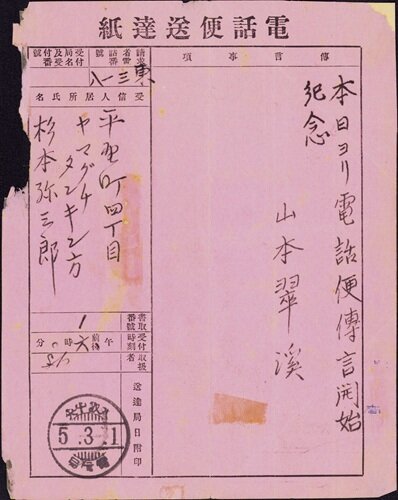 電話便送達紙
傳言事項
本日ヨリ電話便傳言開始
紀念
山本翠溪
請求者電話番號
東
三一八
受付局名及受付番號
受信人居所氏名
平野町四丁目
ヤマグチ
タンキン方
杉本弥三郎
書取番號
1
受付時刻
午前後
六時〇分
取扱者
送達局日附印
5.3.1